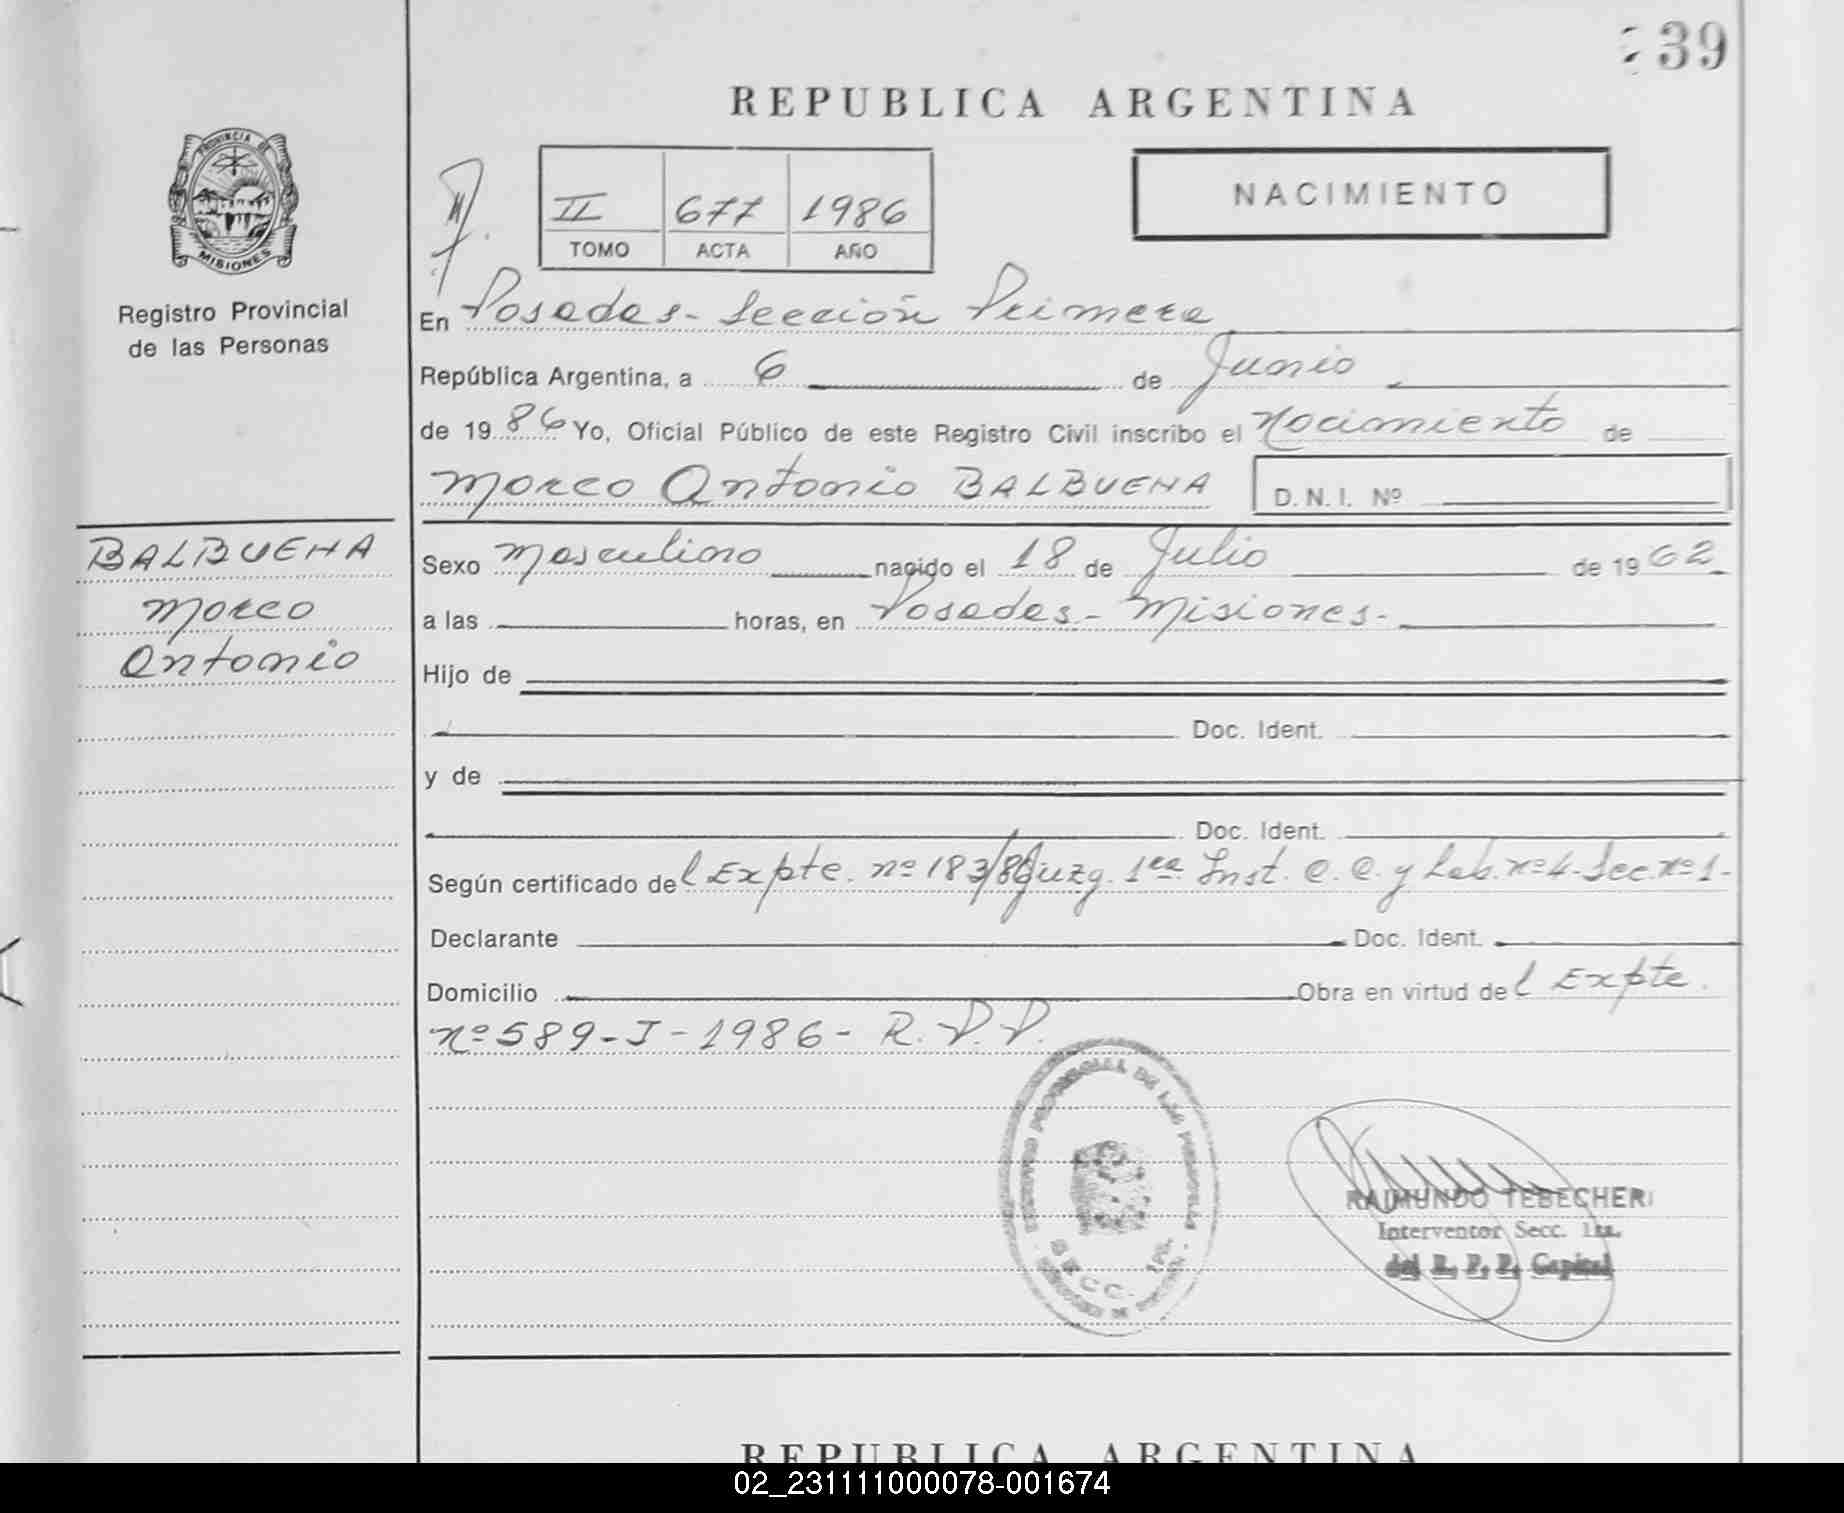 39
REPUBLICA ARGENTINA
PROVINCIA DE
MISIONES
Registro Provincial
de las Personas
II 677 1986
TOMO ACTA AÑO
NACIMIENTO
En Posadas - Sección Primera
República Argentina, a 6 de Junio
de 19 86 Yo, Oficial Público de este Registro Civil inscribo el Nacimiento de
Marco Antonio BALBUENA D.N.I. Nº
BALBUENA
Marco
Antonio
Sexo Masculino nacido el 18 de Julio de 19 62
a las horas, en Posadas - Misiones.-
Hijo de
Doc. Ident.
y de
Doc. Ident.
Según certificado del Expte. nº 183/86 Juzg. 1ra Inst. C. C. y Lab. nº 4 - Sec. nº 1 -
Declarante Doc. Ident.
Domicilio Obra en virtud del Expte.
nº 589 - I - 1986 - R. P. P.
PROVINCIAL DE LAS PERSONAS
SECC. 1ra.
RAIMUNDO TEBECHERI
Interventor Secc. 1ra.
del R. P. P. Capital
REPUBLICA ARGENTINA
02_231111000078-001674